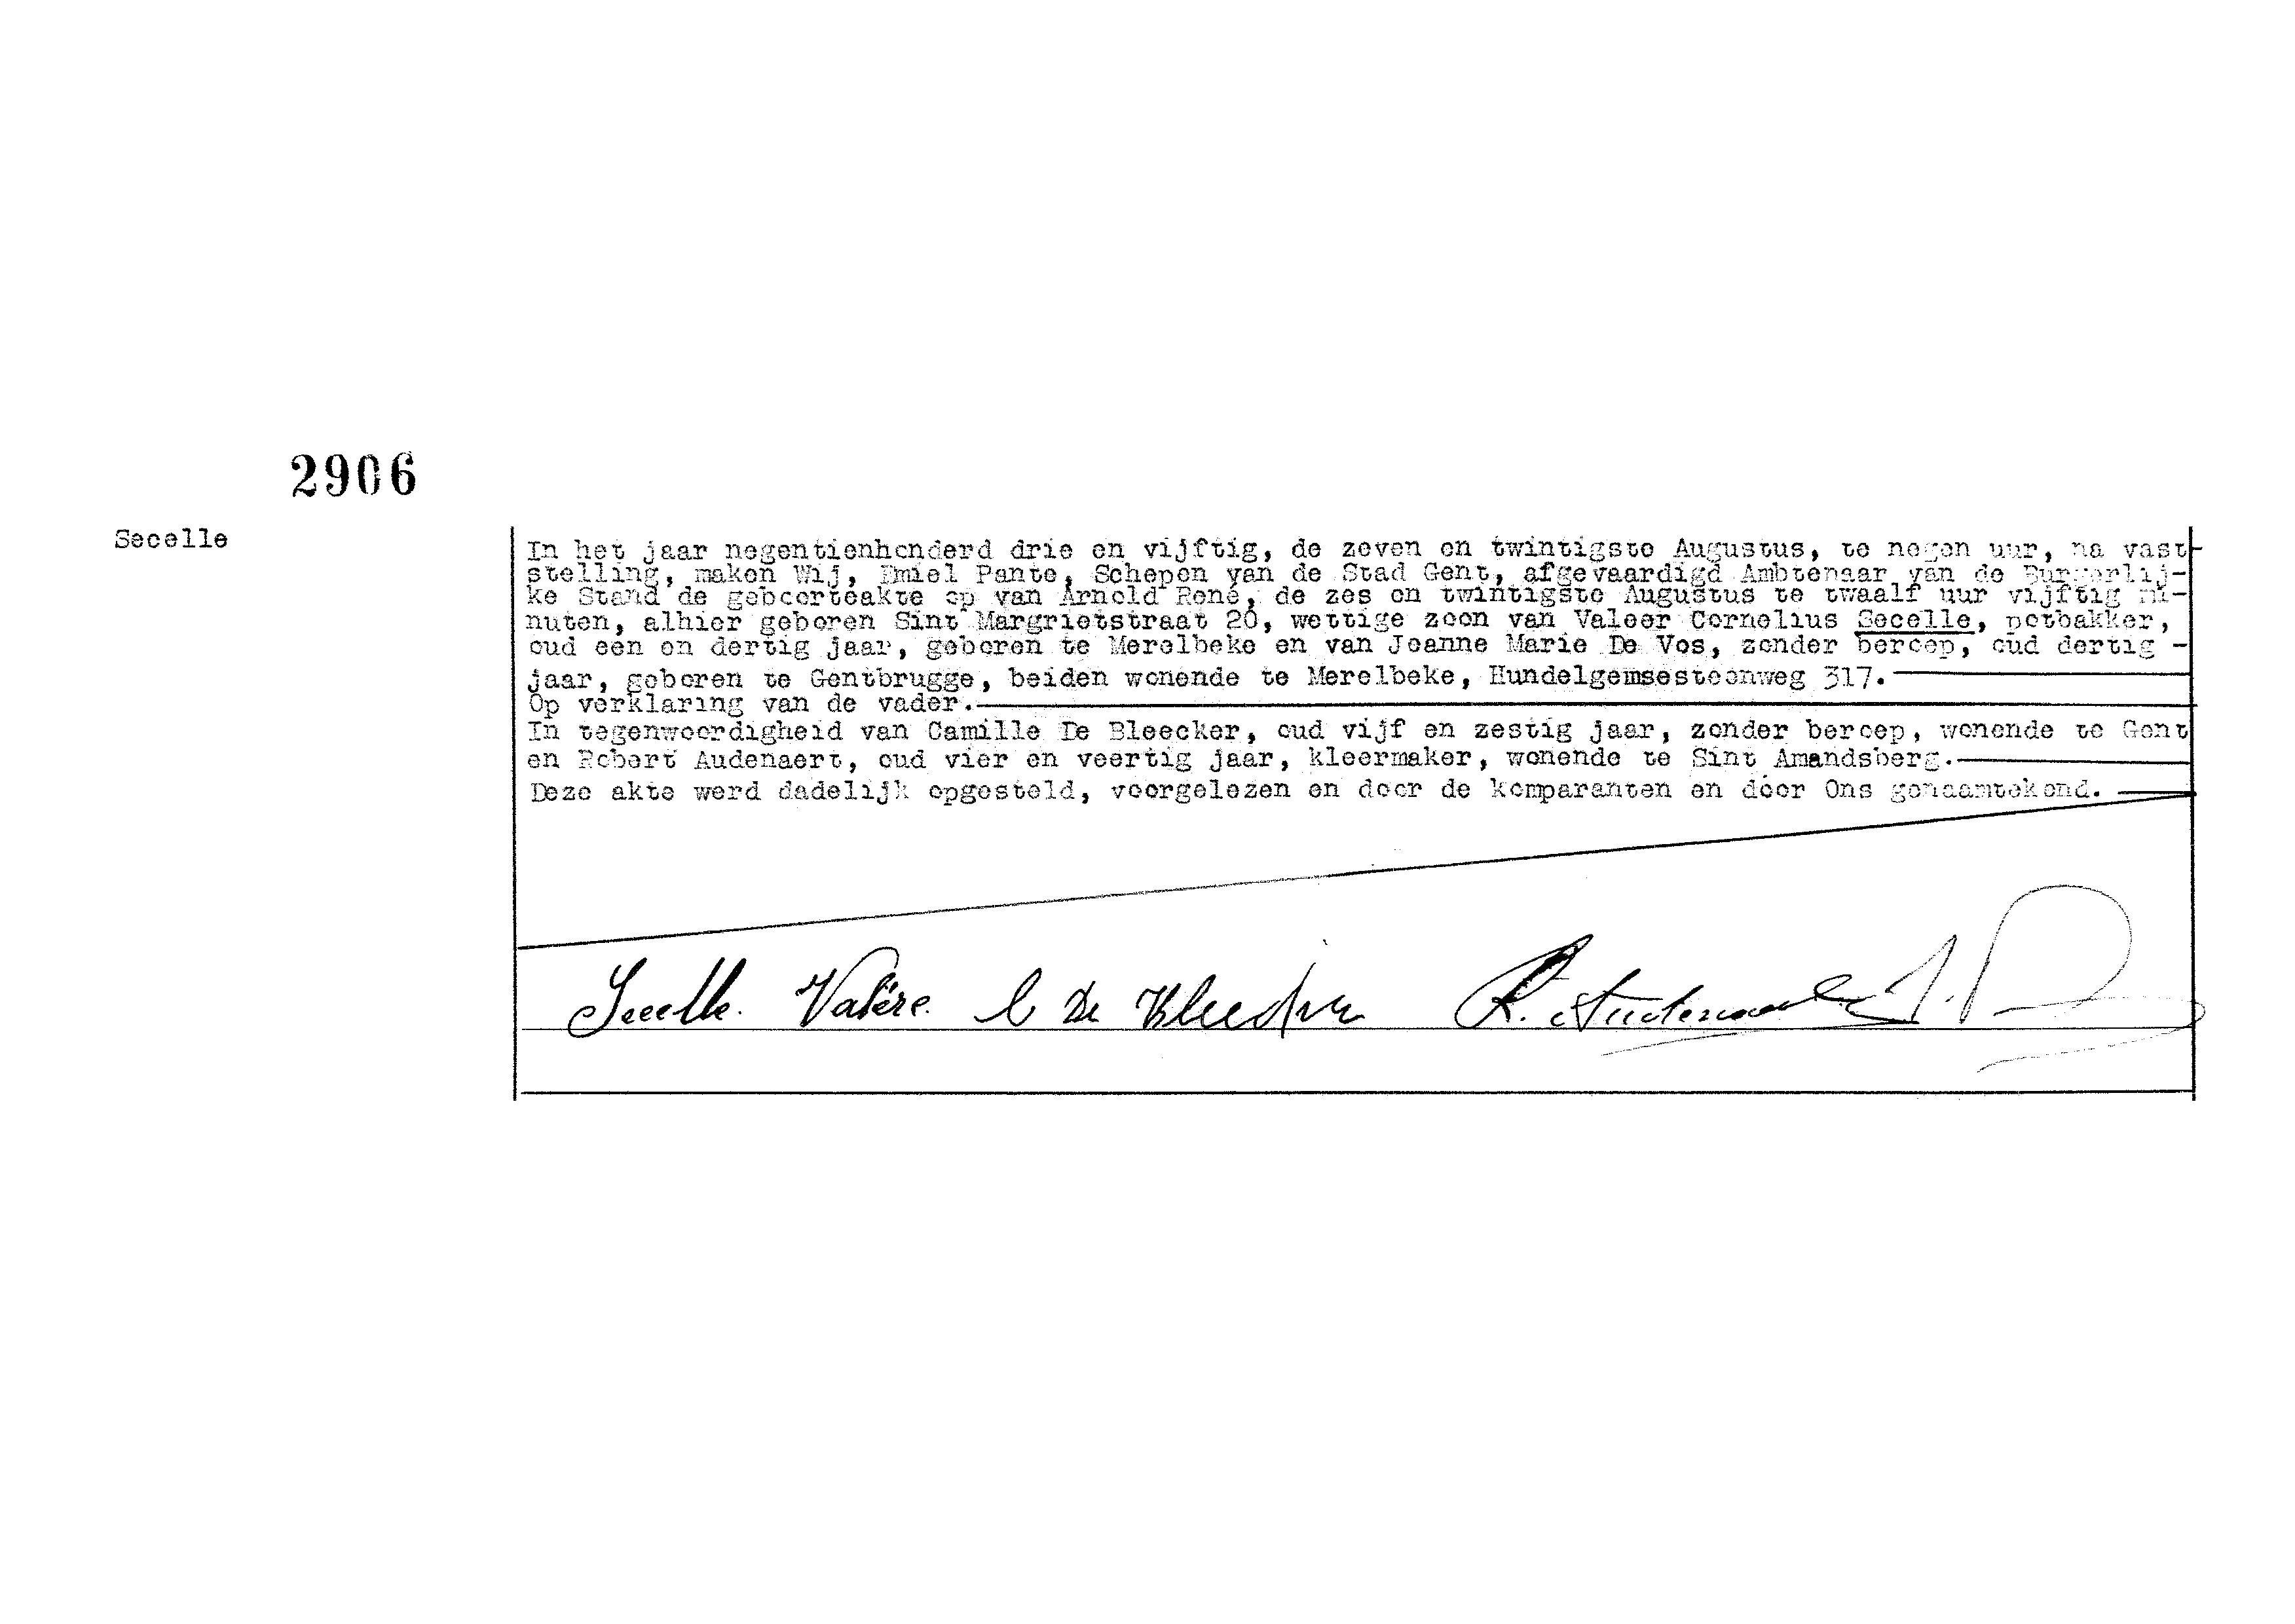 2906
Secelle
In het jaar negentienhonderd drie en vijftig, de zeven en twintigste Augustus, te negen uur, na vast-
stelling, maken Wij, Emiel Pante, Schepen van de Stad Gent, afgevaardigd Ambtenaar van de Burgerlij-
ke Stand de geboorteakte op van Arnold René, de zes en twintigste Augustus te twaalf uur vijftig mi-
nuten, alhier geboren Sint Margrietstraat 20, wettige zoon van Valeer Cornelius Secelle, potbakker,
oud een en dertig jaar, geboren te Merelbeke en van Jeanne Marie De Vos, zonder beroep, oud dertig -
jaar, geboren te Gentbrugge, beiden wonende te Merelbeke, Hundelgemsesteenweg 317.
Op verklaring van de vader.
In tegenwoordigheid van Camille De Bleecker, oud vijf en zestig jaar, zonder beroep, wonende te Gent
en Robert Audenaert, oud vier en veertig jaar, kleermaker, wonende te Sint Amandsberg.
Deze akte werd dadelijk opgesteld, voorgelezen en door de komparanten en door Ons genaamtekend.
Secelle. Valère. C De Bleecker R. Audenaert